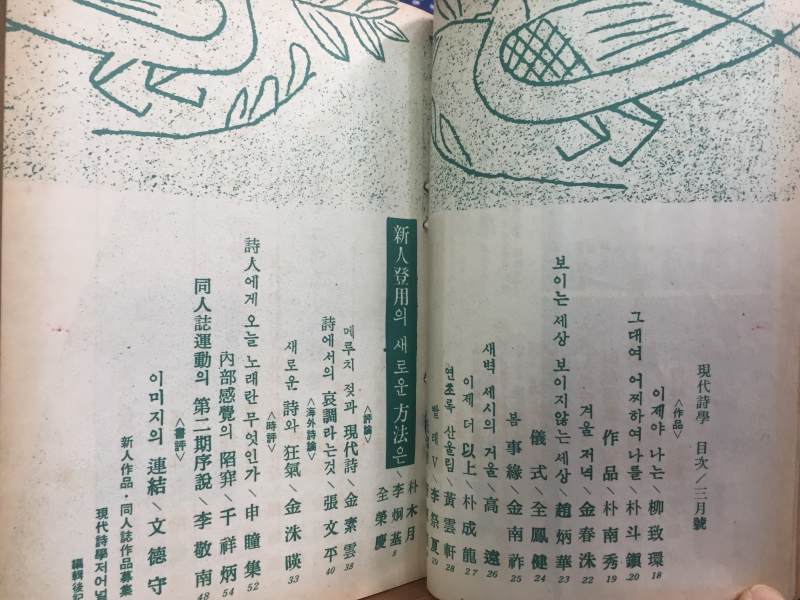 現代詩學 目次/三月號
<作品>
이제야 나는\柳致環 18
그대여 어찌하여나를\朴斗鎭 20
作品\朴南秀 19
겨울 저녁\金春洙 22
보이는세상 보이지않는세상\趙炳華 23
儀式\全鳳健 24
봄 事緣\金南祚 25
새벽 세시의 거울\高遠 26
이제 더 以上\朴成龍 27
연초록 산울림\黃雲軒 28
빨래 V\李祭夏 29
新人登用의 새로운 方法은
朴木月
李炯基 8
全榮慶
<評論>
메루치 젖과 現代詩\金素雲 38
詩에서의 哀調라는것\張文平 40
<海外詩論>
새로운 詩와 狂氣\金洙暎 33
<時評>
詩人에게 오늘 노래란 무엇인가\申瞳集 52
內部感覺의 陷穽\千祥炳 54
同人誌運動의 第二期序說\李敬南 48
<書評>
이미지의 連結\文德守
新人作品·同人誌作品募集
現代詩學저어널
編輯後記